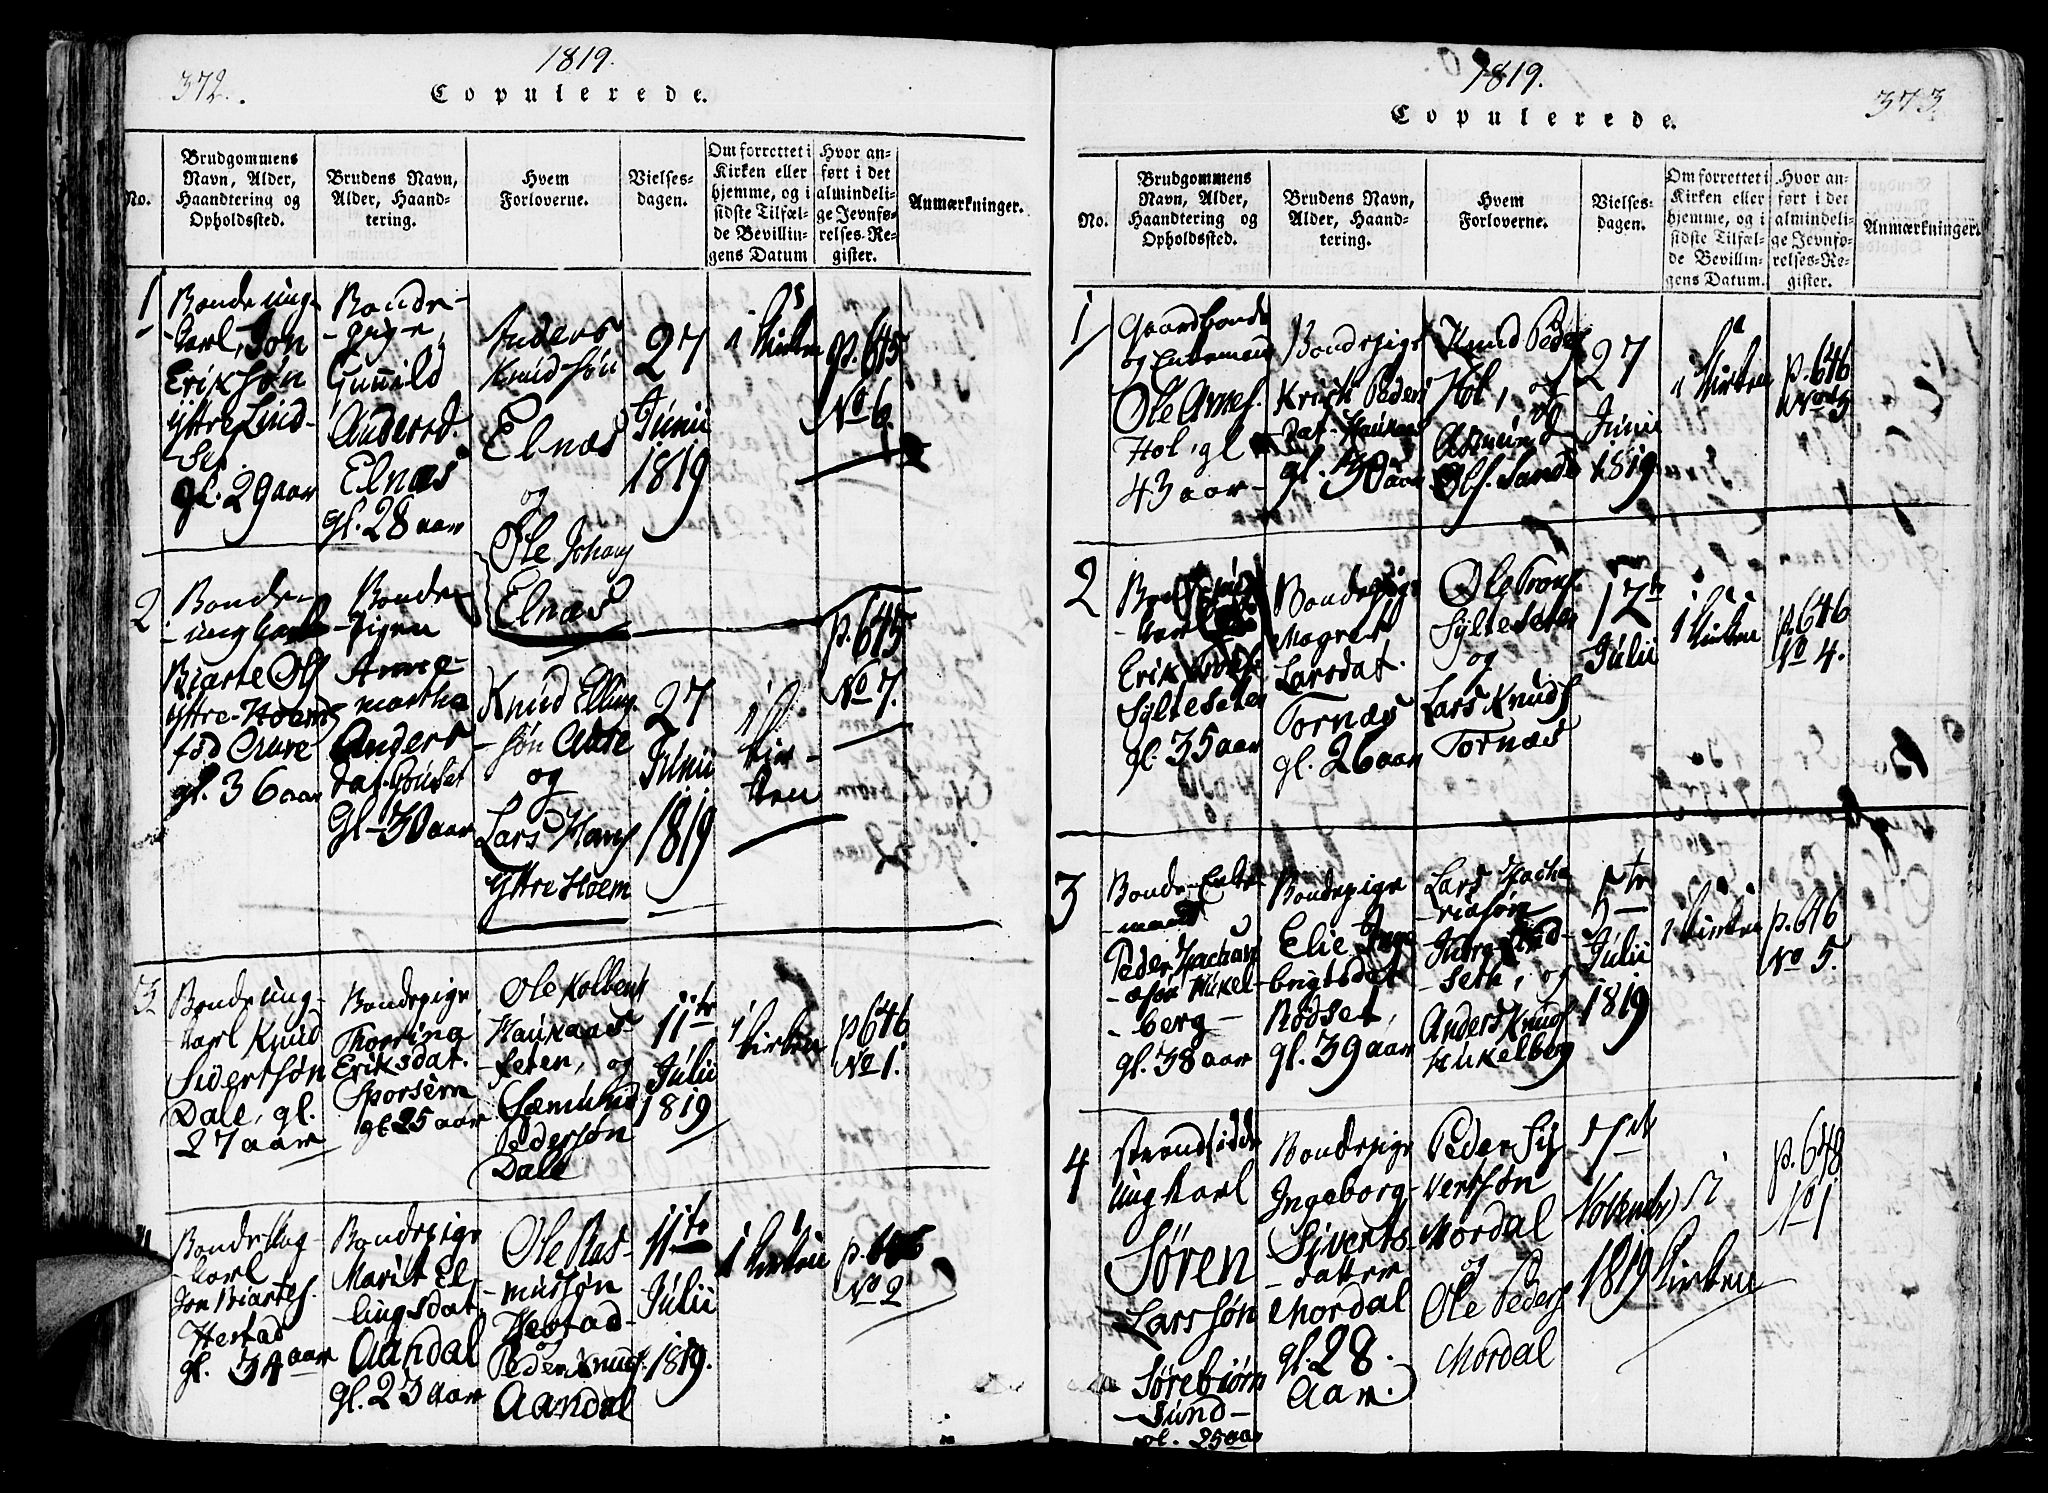 372.
1819.
Copulerede.
No.
Brudgommens
Navn, Alder,
Haandtering og
Opholdssted.
Brudens Navn,
Alder, Haand-
tering.
Hvem
Forloverne.
Vielses-
dagen.
Om forrettet i
Kirken eller
hjemme, og i
sidste Tilfæl-
de Bevillin-
gens Datum
Hvor an-
ført i det
almindeli-
ge Jevnfø-
relses-Re-
gister.
Anmærkninger.
1
Bonde ung-
karl, Jon
Erik søn
Yttre Lind-
set
gl. 29 aar
Bonde-
-pige,
Gunild
Andersd.
Elnæs
gl. 28 aar
Anders
Knudsøn
Elnæs
og
Ole Johans
Elnæs
27
Junii
1819
i Kirken
p. 645
No 6.
2
Bonde-
-ung karl
Biarte Ols
Yttre-Hoem
fød Aure
gl. 36 aar
Bonde
-pigen
Anne-
martha
Anders
dat.
Gl-30 aar
Knud Elling-
-søn Aure
og
Lars Hans
Yttre Hoem
27
Junii
1819
i
Kir-
ken
p. 645
No 7.
3
Bonde ung-
-karl Knud
Sivertsøn
Dale, gl.
27 aar
Bondepige
Eriksdat.
Sporsem
gl. 25 aar
Ole Kolbens
Haukaas
-seten, og
Sæmund
Pedersøn
Dale
11te
Julii
1819
i
Kirken
p. 646
No 1.
Bonde Ung-
-karl
Jon Biartes.
Hestad
gl. 34 aar
Bondepige
Marit El-
-lingsdat.
Aandal
gl. 23 aar
Ole Ras-
-mussøn
Hestad-
og
Peder Knuds.
Aandal
11te
Julii
1819.
i Kirken
p. 646
No 2
1819.
373
Copulerede.
No.
Brudgommens
Navn, Alder,
Haandtering og
Opholdssted.
Brudens Navn,
Alder, Haand-
tering.
Hvem
Forloverne.
Vielses-
dagen.
Om forrettet i
Kirken eller
hjemme, og i
sidste Tilfæl-
de Bevillin-
gens Datum.
Hvor an-
ført i det
almindeli-
ge Jevnfø-
relses-Re-
gister.
Anmærkninger.
1
Gaardbonde
og Enkemand
Ole Arnes.
Hol, gl
43 aar-
Bondepige
Kristi Peders
gl. 30 aar
Knud Peders
Hol, og
Asmund
Ols. Sande
27
Junii
1819
i Kirken
p. 646
No 3
2
Erik
Sylteseten
gl. 35 aar
Bondepige
Magret
Larsdat.
Tornæs
gl. 26 aar
Ole Trons.
Sylteseten
og
Lars Knuds
Tornæs
Julii
i Kirken
p. 646
No 4.
3
Bonde-Enke-
-mand
Peder Zachari-
-asøn Mikel-
-berg-
gl. 38 aar
Bondepige
Elie Inge
brigtsdat
Rødset,
gl. 39 aar
Lars Zacha
-riasøn
Lind-
-seth, og
Anders Knuds
Mikelberg
5te
Julii
1819
i Kirken
p. 646
No 5.
4
Strandsidde
Ungkarl
Søren
Lars søn
Sørebiørn
-Sund-
gl. 25 aar
Bondepige
Ingeborg-
Siverts-
-datter
Mordal
gl. 28.
Aar.
Peder Si-
vertsøn
Mordal
og
Ole Peders
Mordal
1819
i
Kirken
p. 648
No 1